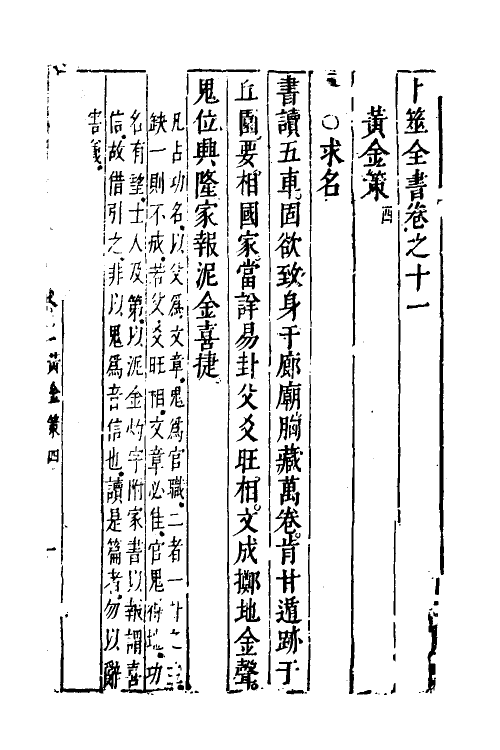 卜筮全書卷之十一
黃金策 四
○求名
書讀五車固欲致身于廊廟胸藏萬卷肯甘遁跡于
丘園要相國家當詳易卦父爻旺相文成擲地金聲
鬼位興隆家報泥金喜捷
凡占功名以父爲文章鬼爲官職二者一卦之主
缺一則不成若父爻旺相文章必佳官鬼得地功
名有望士人及第以泥金書字附家書以報謂喜
信故借引之非以鬼爲音信也讀是篇者勿以辭
害義
黃金策四 一